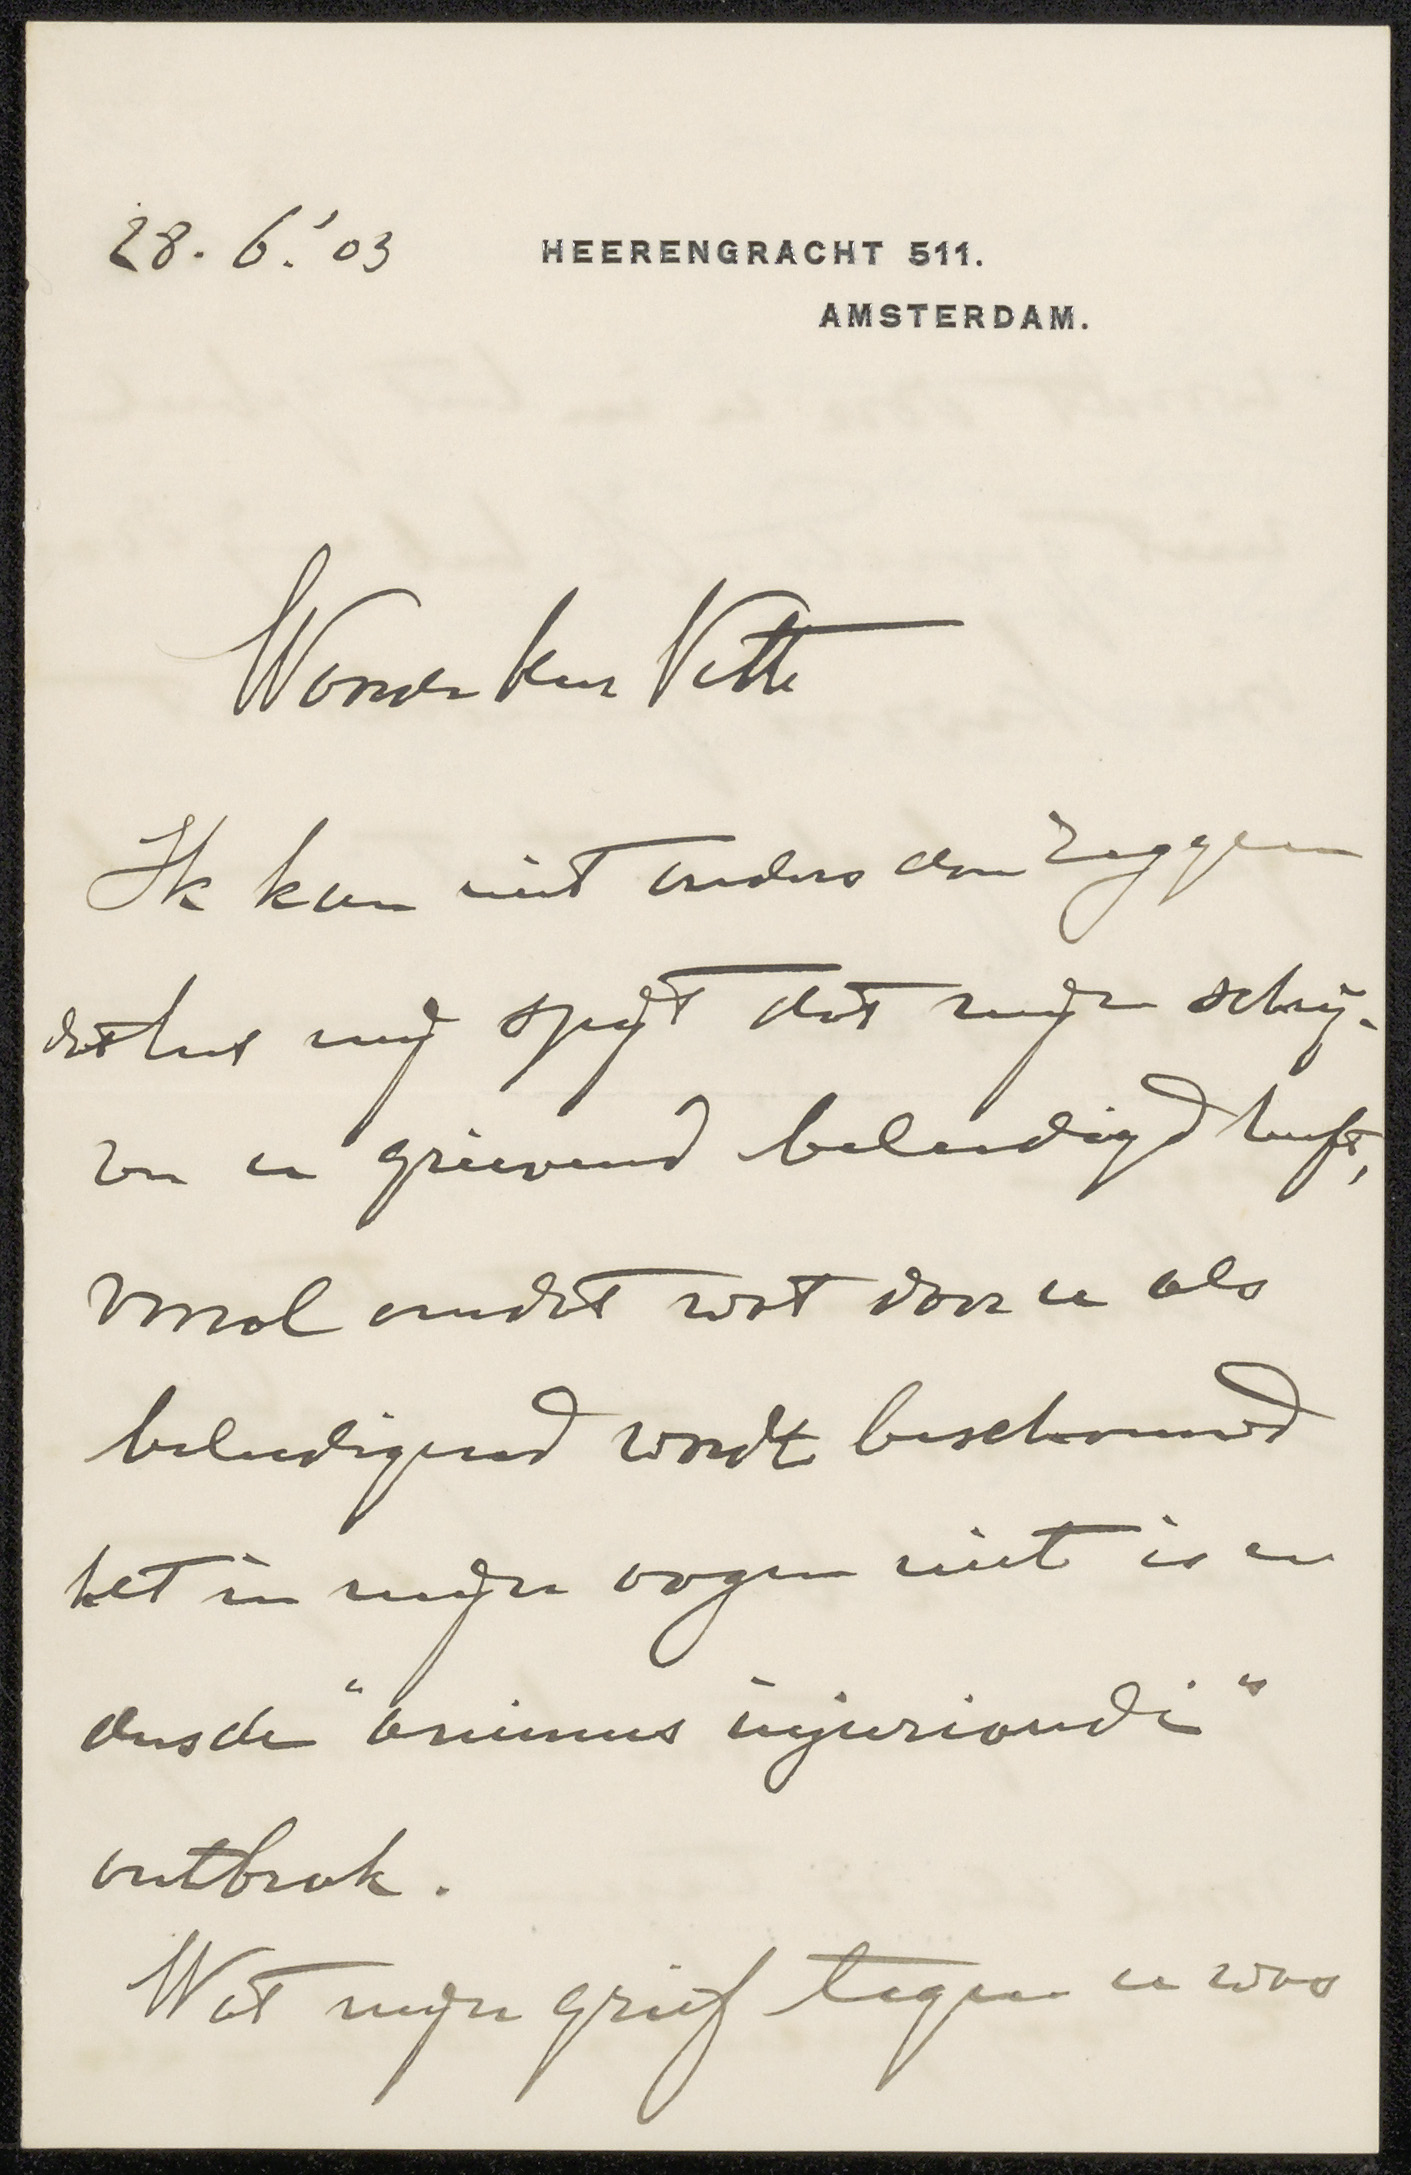 28. 6.' 03
HEERENGRACHT 511.
AMSTERDAM.
Waarde heer Veth
Ik kan niet anders dan zeggen
dat het mij spijt dat mijn schrij-
ven u grievend beleedigd heeft,
vooral omdat wat door u als
beleedigend wordt beschouwd
het in mijn oogen niet is en
dus de "animus injuriandi"
ontbrak.
Wat mijn grief tegen u was